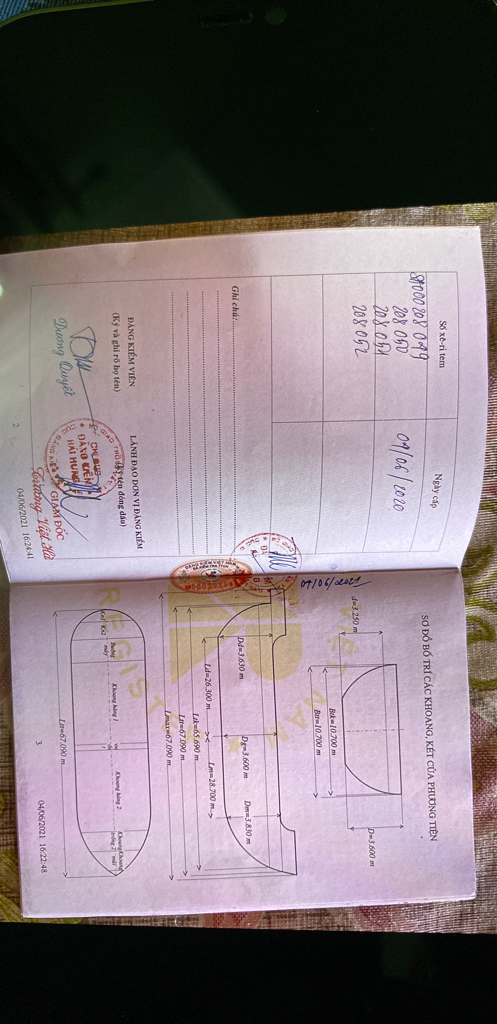 Số xê-ri tem
Ngày cấp
208 050
04/06/2020
208 051
208 052
Ghi chú:
ĐĂNG KIỂM VIÊN
(Ký và ghi rõ họ tên)
LÃNH ĐẠO ĐƠN VỊ ĐĂNG KIỂM
(Ký tên đóng dấu)
GIÁM ĐỐC
Dương Quyết
04/06/2021 16:24:41
2
SƠ ĐỒ BỐ TRÍ CÁC KHOANG, KÉT CỦA PHƯƠNG TIỆN
Btk=10.700 m
Btr=10.700 m
d=3.250 m
D=3.600 m
04/06/2021
VIỆT NAM
VR
REGISTER
Dd=3.630 m
Dg=3.600 m
Dm=3.830 m
Ld=26.300 m
Lm=28.700 m
Ltk=65.690 m
Ltr=67.090 m
Lmax=67.090 m
Buồng
máy
Khoang hàng 1
Khoang hàng 2
Khoang
trống 2
Khoang
mũi
Ln=67.090 m
3
04/06/2021 16:22:48